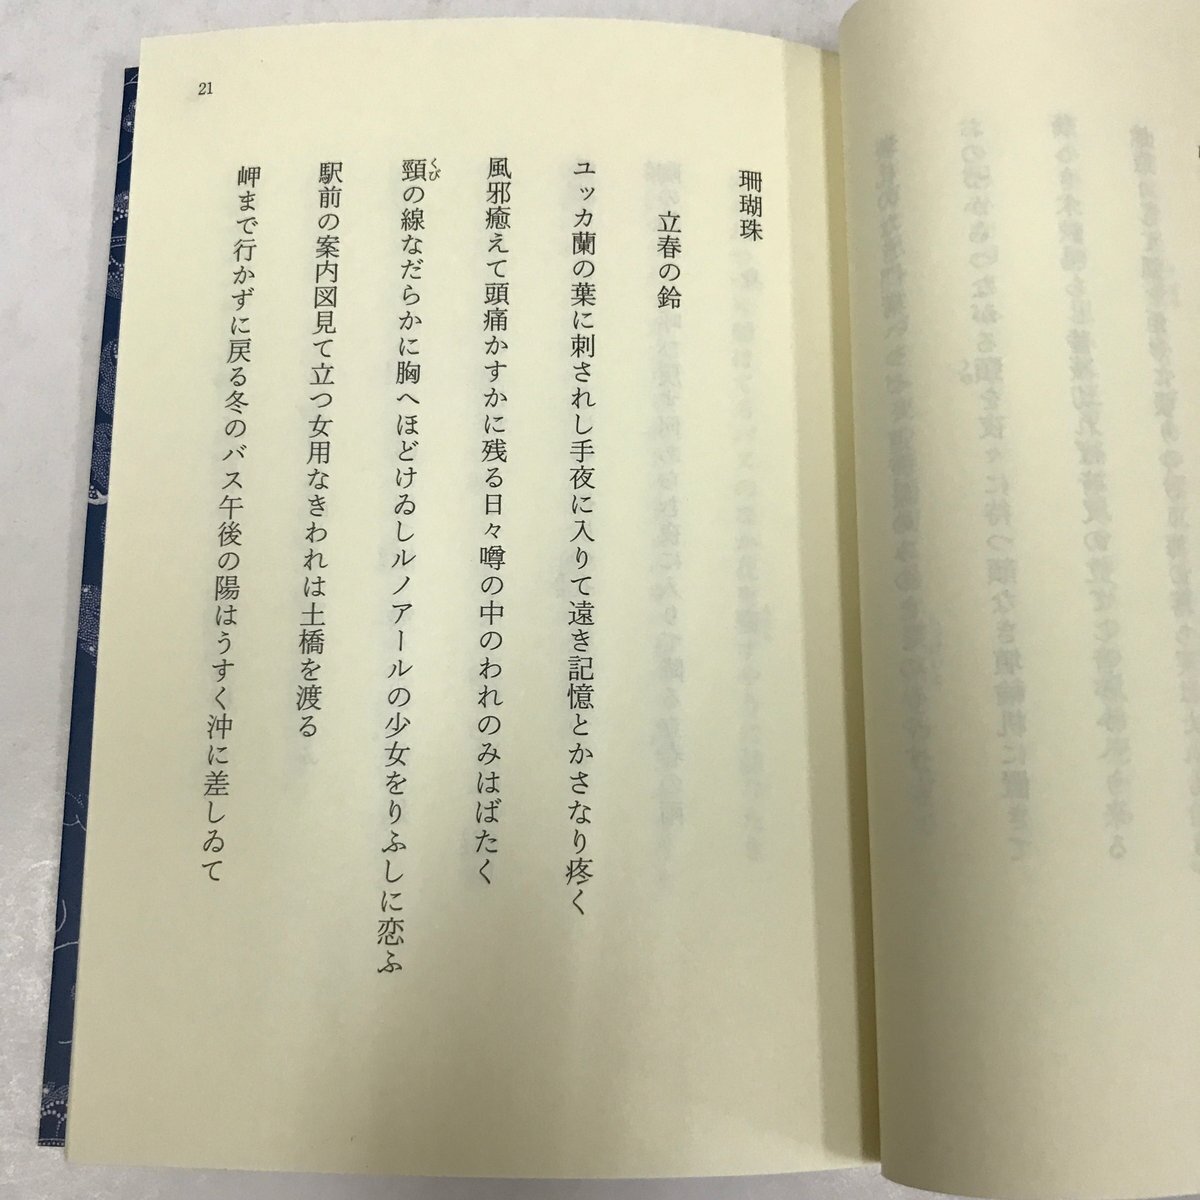 珊瑚珠
立春の鈴
ユッカ蘭の葉に刺されし手夜に入りて遠き記憶とかさなり疼く
風邪癒えて頭痛かすかに残る日々噂の中のわれのみはばたく
頸の線なだらかに胸へほどけゐしルノアールの少女をりふしに恋ふ
くび
駅前の案内図見て立つ女用なきわれは土橋を渡る
岬まで行かずに戻る冬のバス午後の陽はうすく沖に差しゐて
21